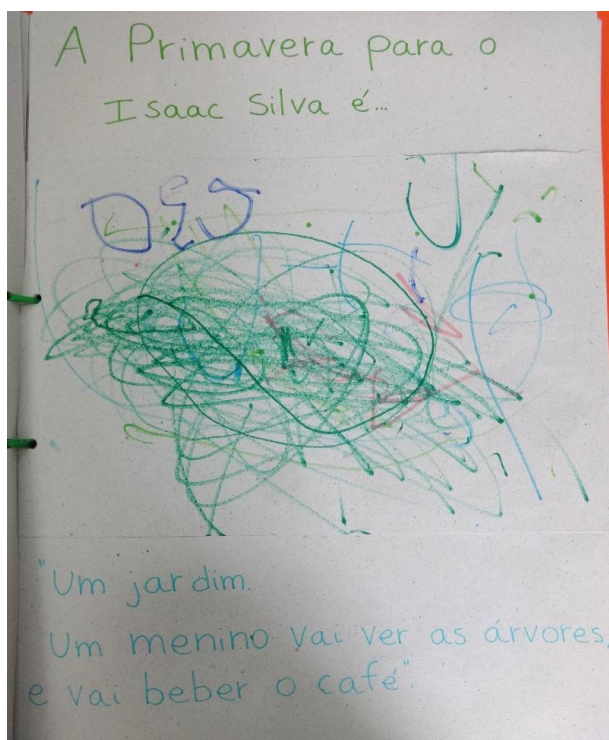 A Primavera para o
Isaac Silva é...
"Um jardim.
Um menino vai ver as árvores,
e vai beber o café".